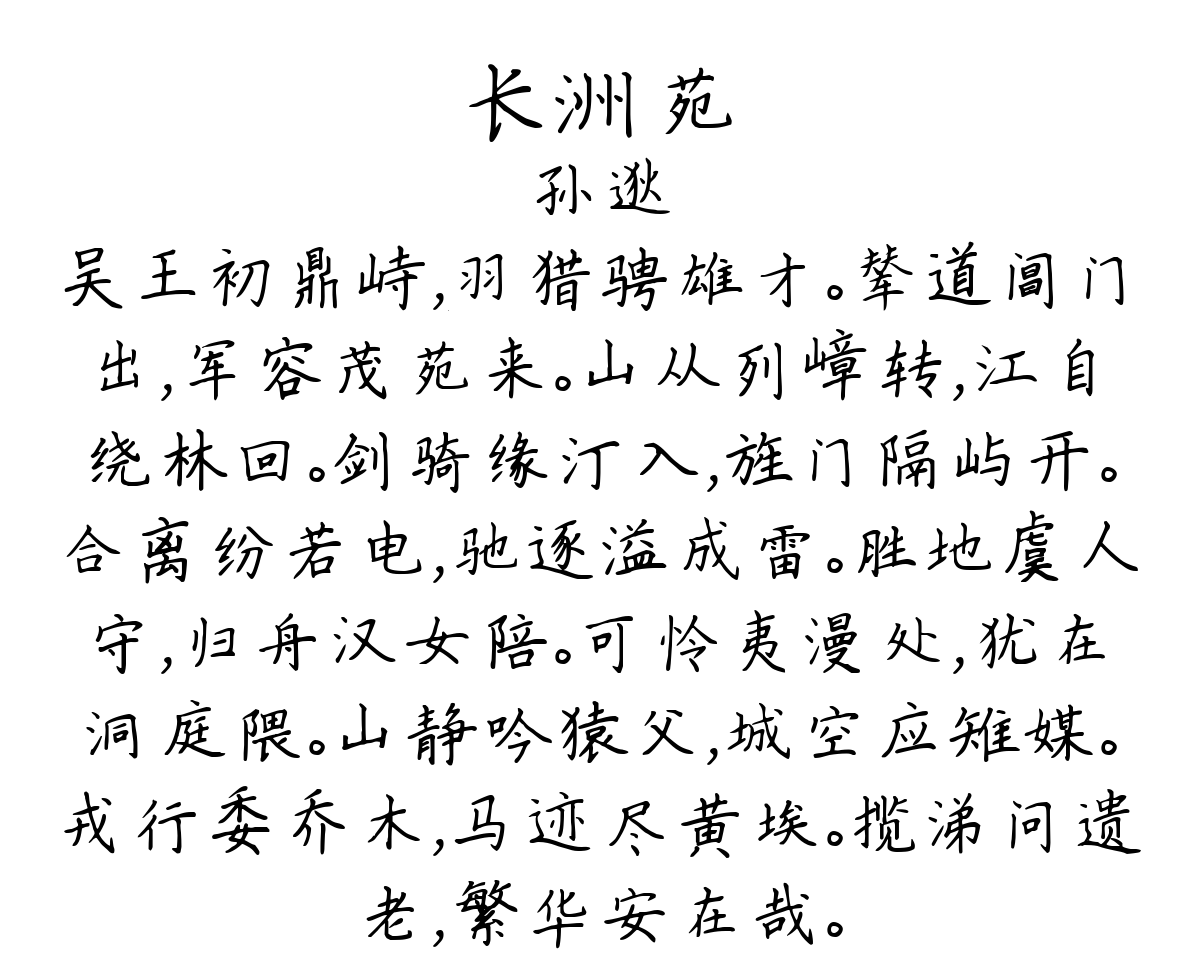 长洲苑
孙逖
吴王初鼎峙,羽猎骋雄才。辇道阊门
出,军容茂苑来。山从列嶂转,江自
绕林回。剑骑缘汀入,旌门隔屿开。
合离纷若电,驰逐溢成雷。胜地虞人
守,归舟汉女陪。可怜夷漫处,犹在
洞庭隈。山静吟猿父,城空应雉媒。
戎行委乔木,马迹尽黄埃。揽涕问遗
老,繁华安在哉。